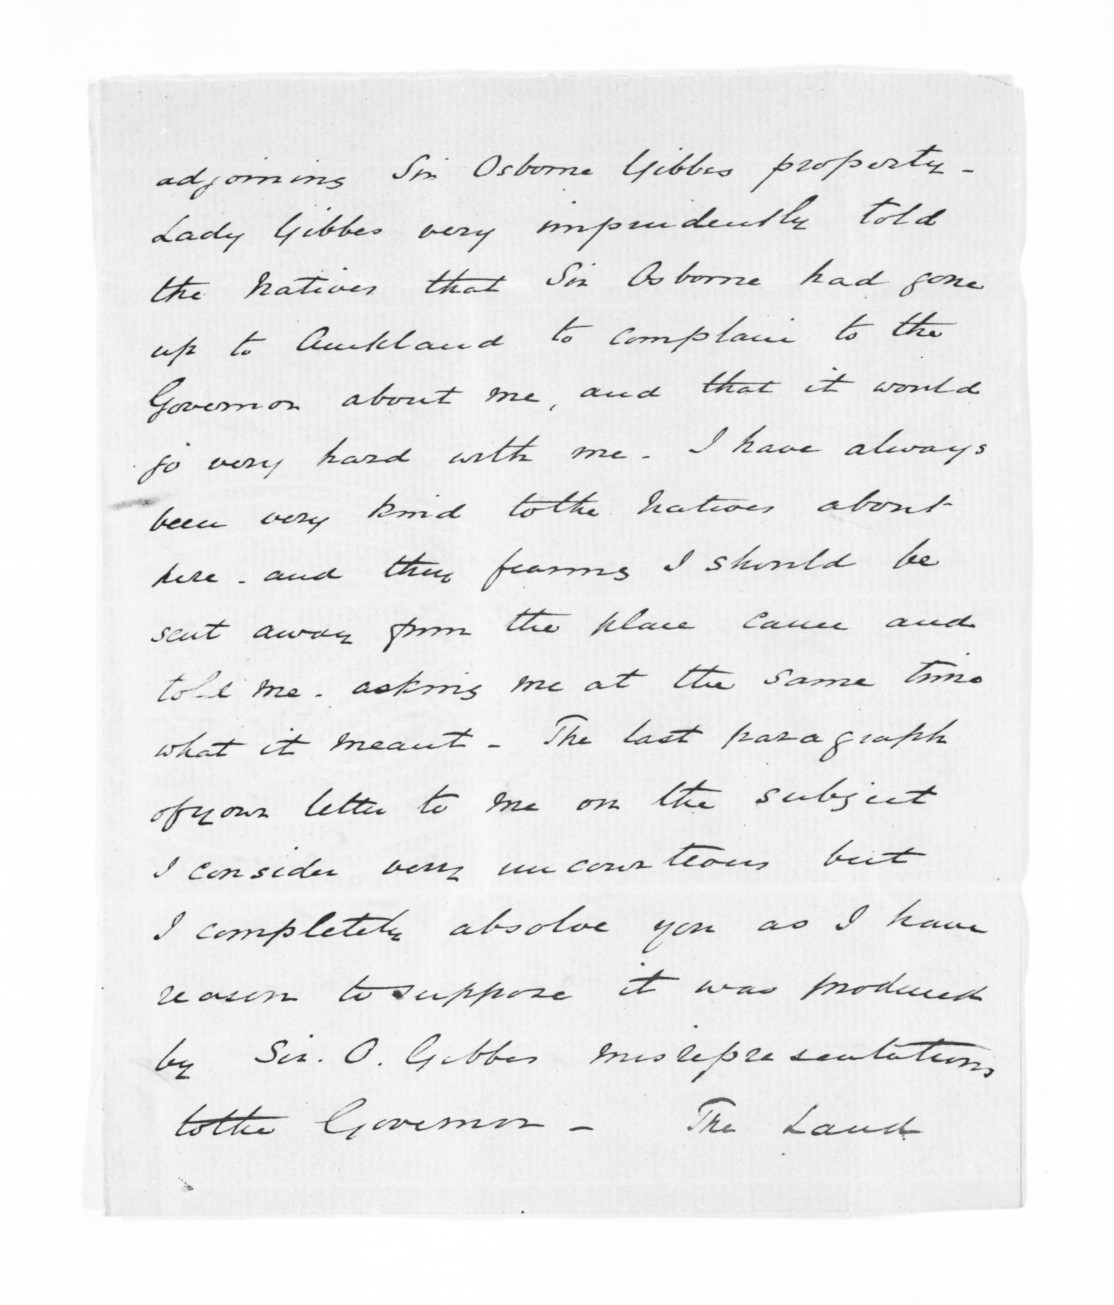 adjoining Sir Osborne Gibbes property -
Lady Gibbes very imprudently told
the Natives that Sir Osborne had gone
up to Auckland to complain to the
Governor about me, and that it would
go very hard with me. I have always
been very kind to the Natives about
here. and they fearing I should be
sent away from the place came and
told me. asking me at the same time
what it meant - The last paragraph
of your letter to me on the subject
I consider very uncourteous but
I completely absolve you as I have
reason to suppose it was produced
by Sir. O. Gibbes misrepresentations
to the Governor - The Land